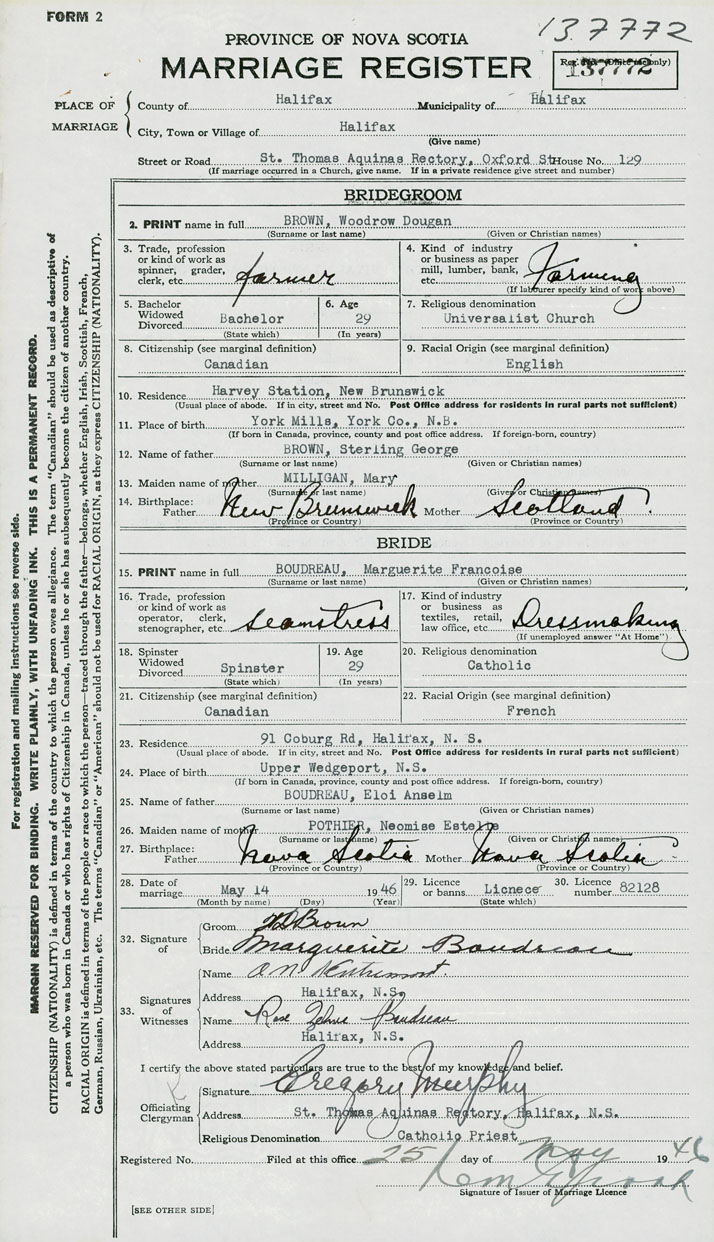 FORM 2
137772
PROVINCE OF NOVA SCOTIA
MARRIAGE REGISTER
137772
PLACE OF MARRIAGE
County of Halifax Municipality of Halifax
City, Town or Village of Halifax
(Give name)
Street or Road St. Thomas Aquinas Rectory, Oxford St House No. 129
(If marriage occurred in a Church, give name. If in a private residence give street and number)
BRIDEGROOM
2. PRINT name in full BROWN, Woodrow Dougan
(Surname or last name) (Given or Christian names)
3. Trade, profession or kind of work as spinner, grader, clerk, etc. farmer
4. Kind of industry or business as paper mill, lumber, bank, etc. Farming
(If labourer specify kind of work above)
5. Bachelor Widowed Divorced Bachelor
(State which)
6. Age 29
(In years)
7. Religious denomination
Universalist Church
8. Citizenship (see marginal definition)
Canadian
9. Racial Origin (see marginal definition)
English
10. Residence Harvey Station, New Brunswick
(Usual place of abode. If in city, street and No. Post Office address for residents in rural parts not sufficient)
11. Place of birth York Mills, York Co., N.B.
(If born in Canada, province, county and post office address. If foreign-born, country)
12. Name of father BROWN, Sterling George
(Surname or last name) (Given or Christian names)
13. Maiden name of mother MILLIGAN, Mary
(Surname or last name) (Given or Christian names)
14. Birthplace: Father New Brunswick Mother Scotland
(Province or Country) (Province or Country)
BRIDE
15. PRINT name in full BOUDREAU, Marguerite Francoise
(Surname or last name) (Given or Christian names)
16. Trade, profession or kind of work as operator, clerk, stenographer, etc. seamstress
17. Kind of industry or business as textiles, retail, law office, etc. Dressmaking
(If unemployed answer "At Home")
18. Spinster Widowed Divorced Spinster
(State which)
19. Age 29
(In years)
20. Religious denomination
Catholic
21. Citizenship (see marginal definition)
Canadian
22. Racial Origin (see marginal definition)
French
23. Residence 91 Coburg Rd, Halifax, N. S.
(Usual place of abode. If in city, street and No. Post Office address for residents in rural parts not sufficient)
24. Place of birth Upper Wedgeport, N.S.
(If born in Canada, province, county and post office address. If foreign-born, country)
25. Name of father BOUDREAU, Eloi Anselm
(Surname or last name) (Given or Christian names)
26. Maiden name of mother POTHIER, Neomise Estelle
(Surname or last name) (Given or Christian names)
27. Birthplace: Father Nova Scotia Mother Nova Scotia
(Province or Country) (Province or Country)
28. Date of marriage May 14 1946
(Month by name) (Day) (Year)
29. Licence or banns Licnece
(State which)
30. Licence number 82128
32. Signature of
Groom WD Brown
Bride Marguerite Boudreau
33. Signatures of Witnesses
Name
Address Halifax, N.S.
Name Rose Boudreau
Address Halifax, N.S.
I certify the above stated particulars are true to the best of my knowledge and belief.
Officiating Clergyman
Signature Gregory Murphy
Address St. Thomas Aquinas Rectory, Halifax, N.S.
Religious Denomination Catholic Priest
Registered No. Filed at this office 25 day of May 1946
Signature of Issuer of Marriage Licence
[SEE OTHER SIDE]
For registration and mailing instructions see reverse side.
MARGIN RESERVED FOR BINDING. WRITE PLAINLY, WITH UNFADING INK. THIS IS A PERMANENT RECORD.
CITIZENSHIP (NATIONALITY) is defined in terms of the country to which the person owes allegiance. The term "Canadian" should be used as descriptive of
a person who was born in Canada or who has rights of Citizenship in Canada, unless he or she has subsequently become the citizen of another country.
RACIAL ORIGIN is defined in terms of the people or race to which the person—traced through the father—belongs, whether English, Irish, Scottish, French,
German, Russian, Ukrainian, etc. The terms "Canadian" or "American" should not be used for RACIAL ORIGIN, as they express CITIZENSHIP (NATIONALITY).